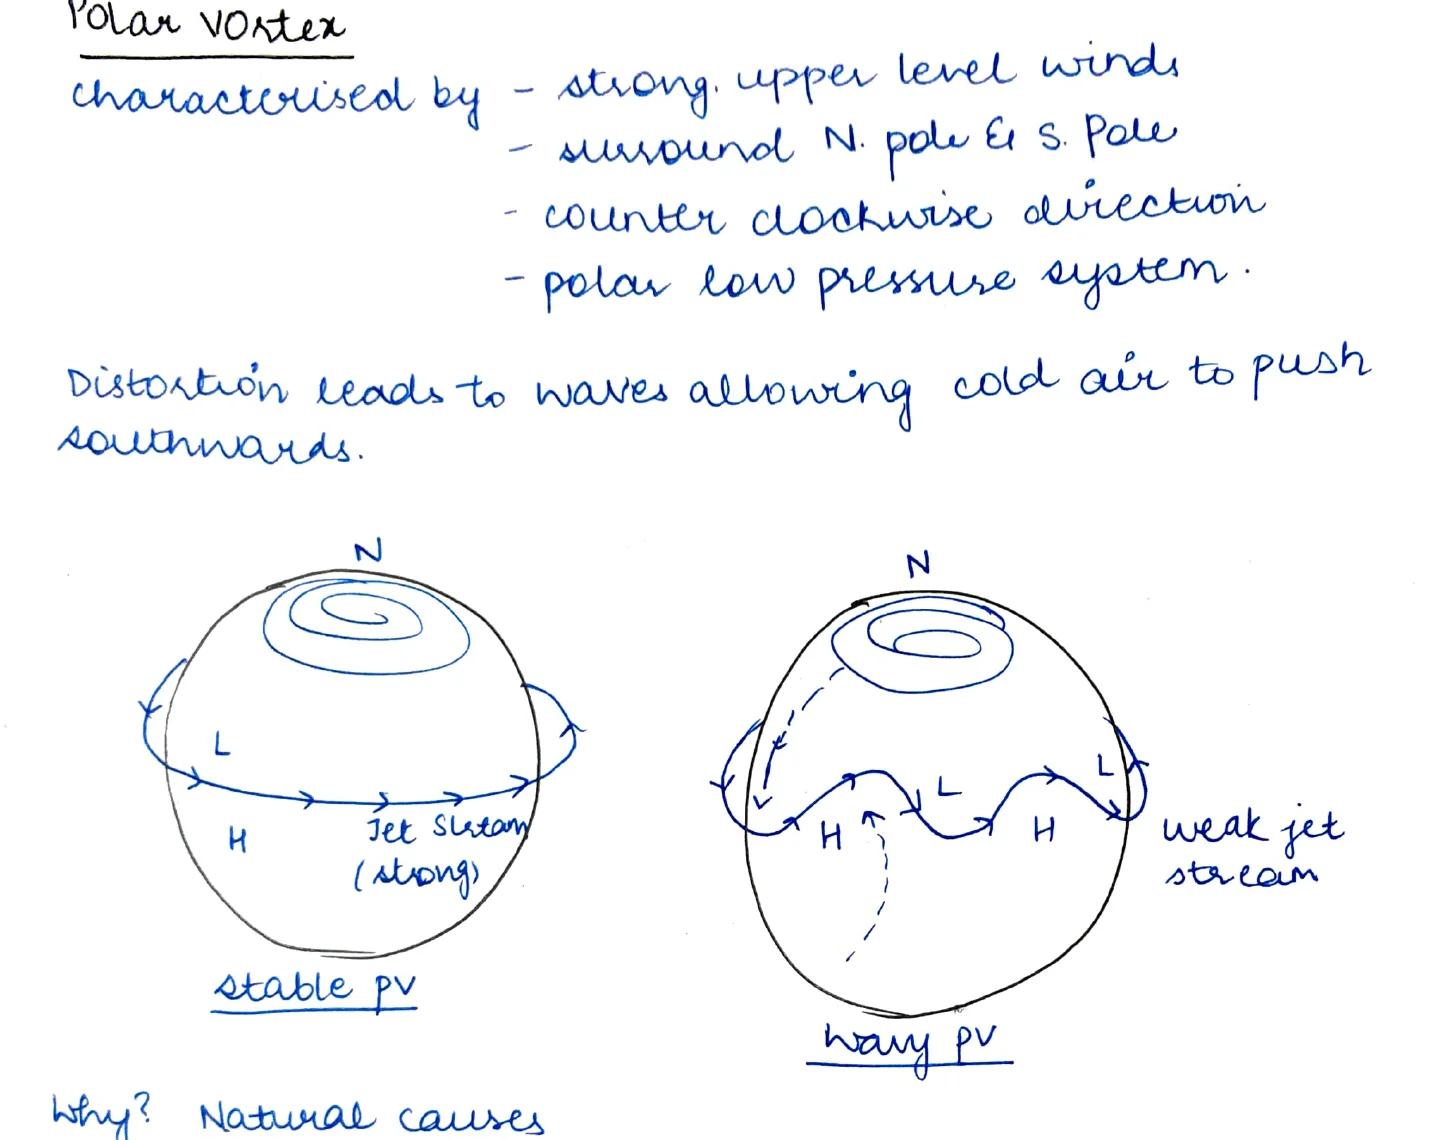 Polar vortex
characterised by - strong. upper level winds
- surround N. pole & S. Pole
- counter clockwise direction
- polar low pressure system.
Distortion leads to waves allowing cold air to push
southwards.
N
L
H
Jet Stream
(strong)
stable PV
N
L
L
H
H
weak jet
stream
wavy PV
Why? Natural causes